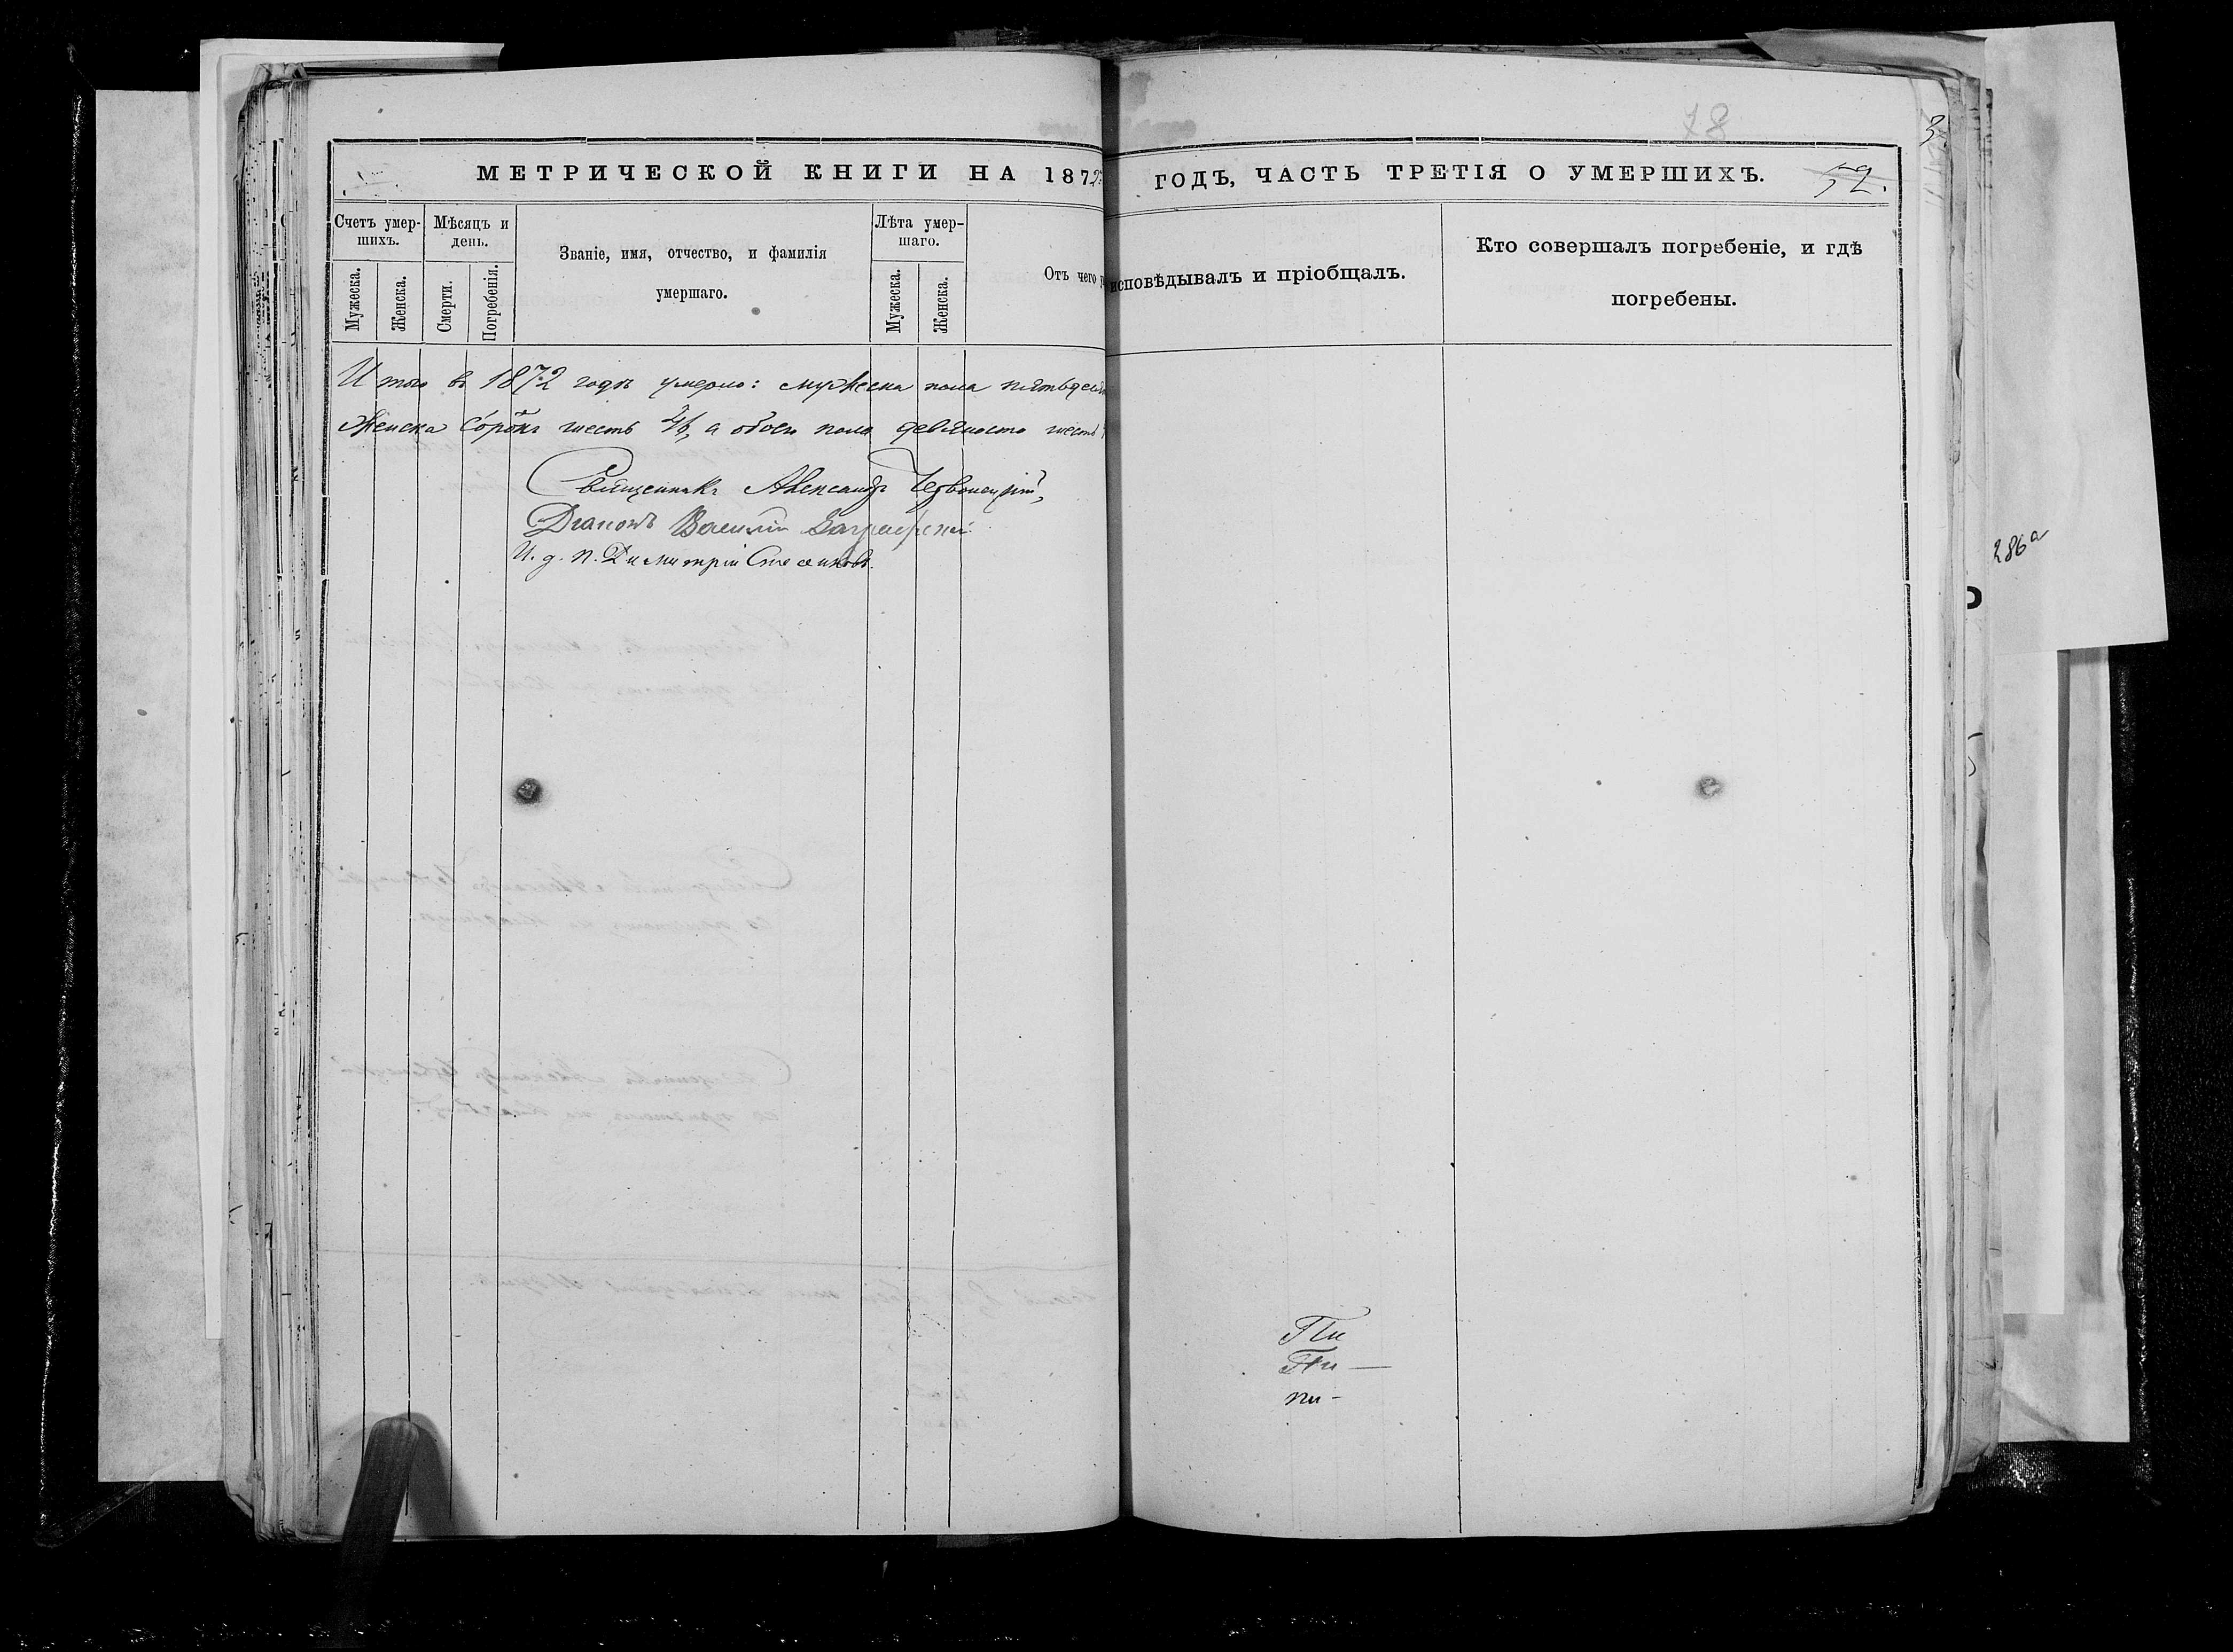 78
3
МЕТРИЧЕСКОЙ КНИГИ НА 1872 ГОДЪ, ЧАСТЬ ТРЕТІЯ О УМЕРШИХЪ. 52.
Счетъ умершихъ.
Мужеска.
Женска.
Мѣсяцъ и день.
Смерти.
Погребенія.
Званіе, имя, отчество, и фамилія
умершаго.
Лѣта умершаго.
Мужеска.
Женска.
Отъ чего
исповѣдывалъ и пріобщалъ.
Кто совершалъ погребеніе, и гдѣ
погребены.
Итого въ 1872 годѣ умерло: мужеска пола пятьдесят
Женска сорокъ шесть 46, а обоего пола девяносто шесть
Священникъ Александръ
Діаконъ Василій
И. д. п. Димитрій
286а